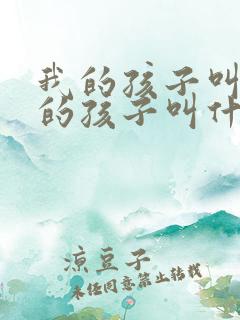 我的孩子叫
的孩子叫什
凉豆子
未经同意禁止转载